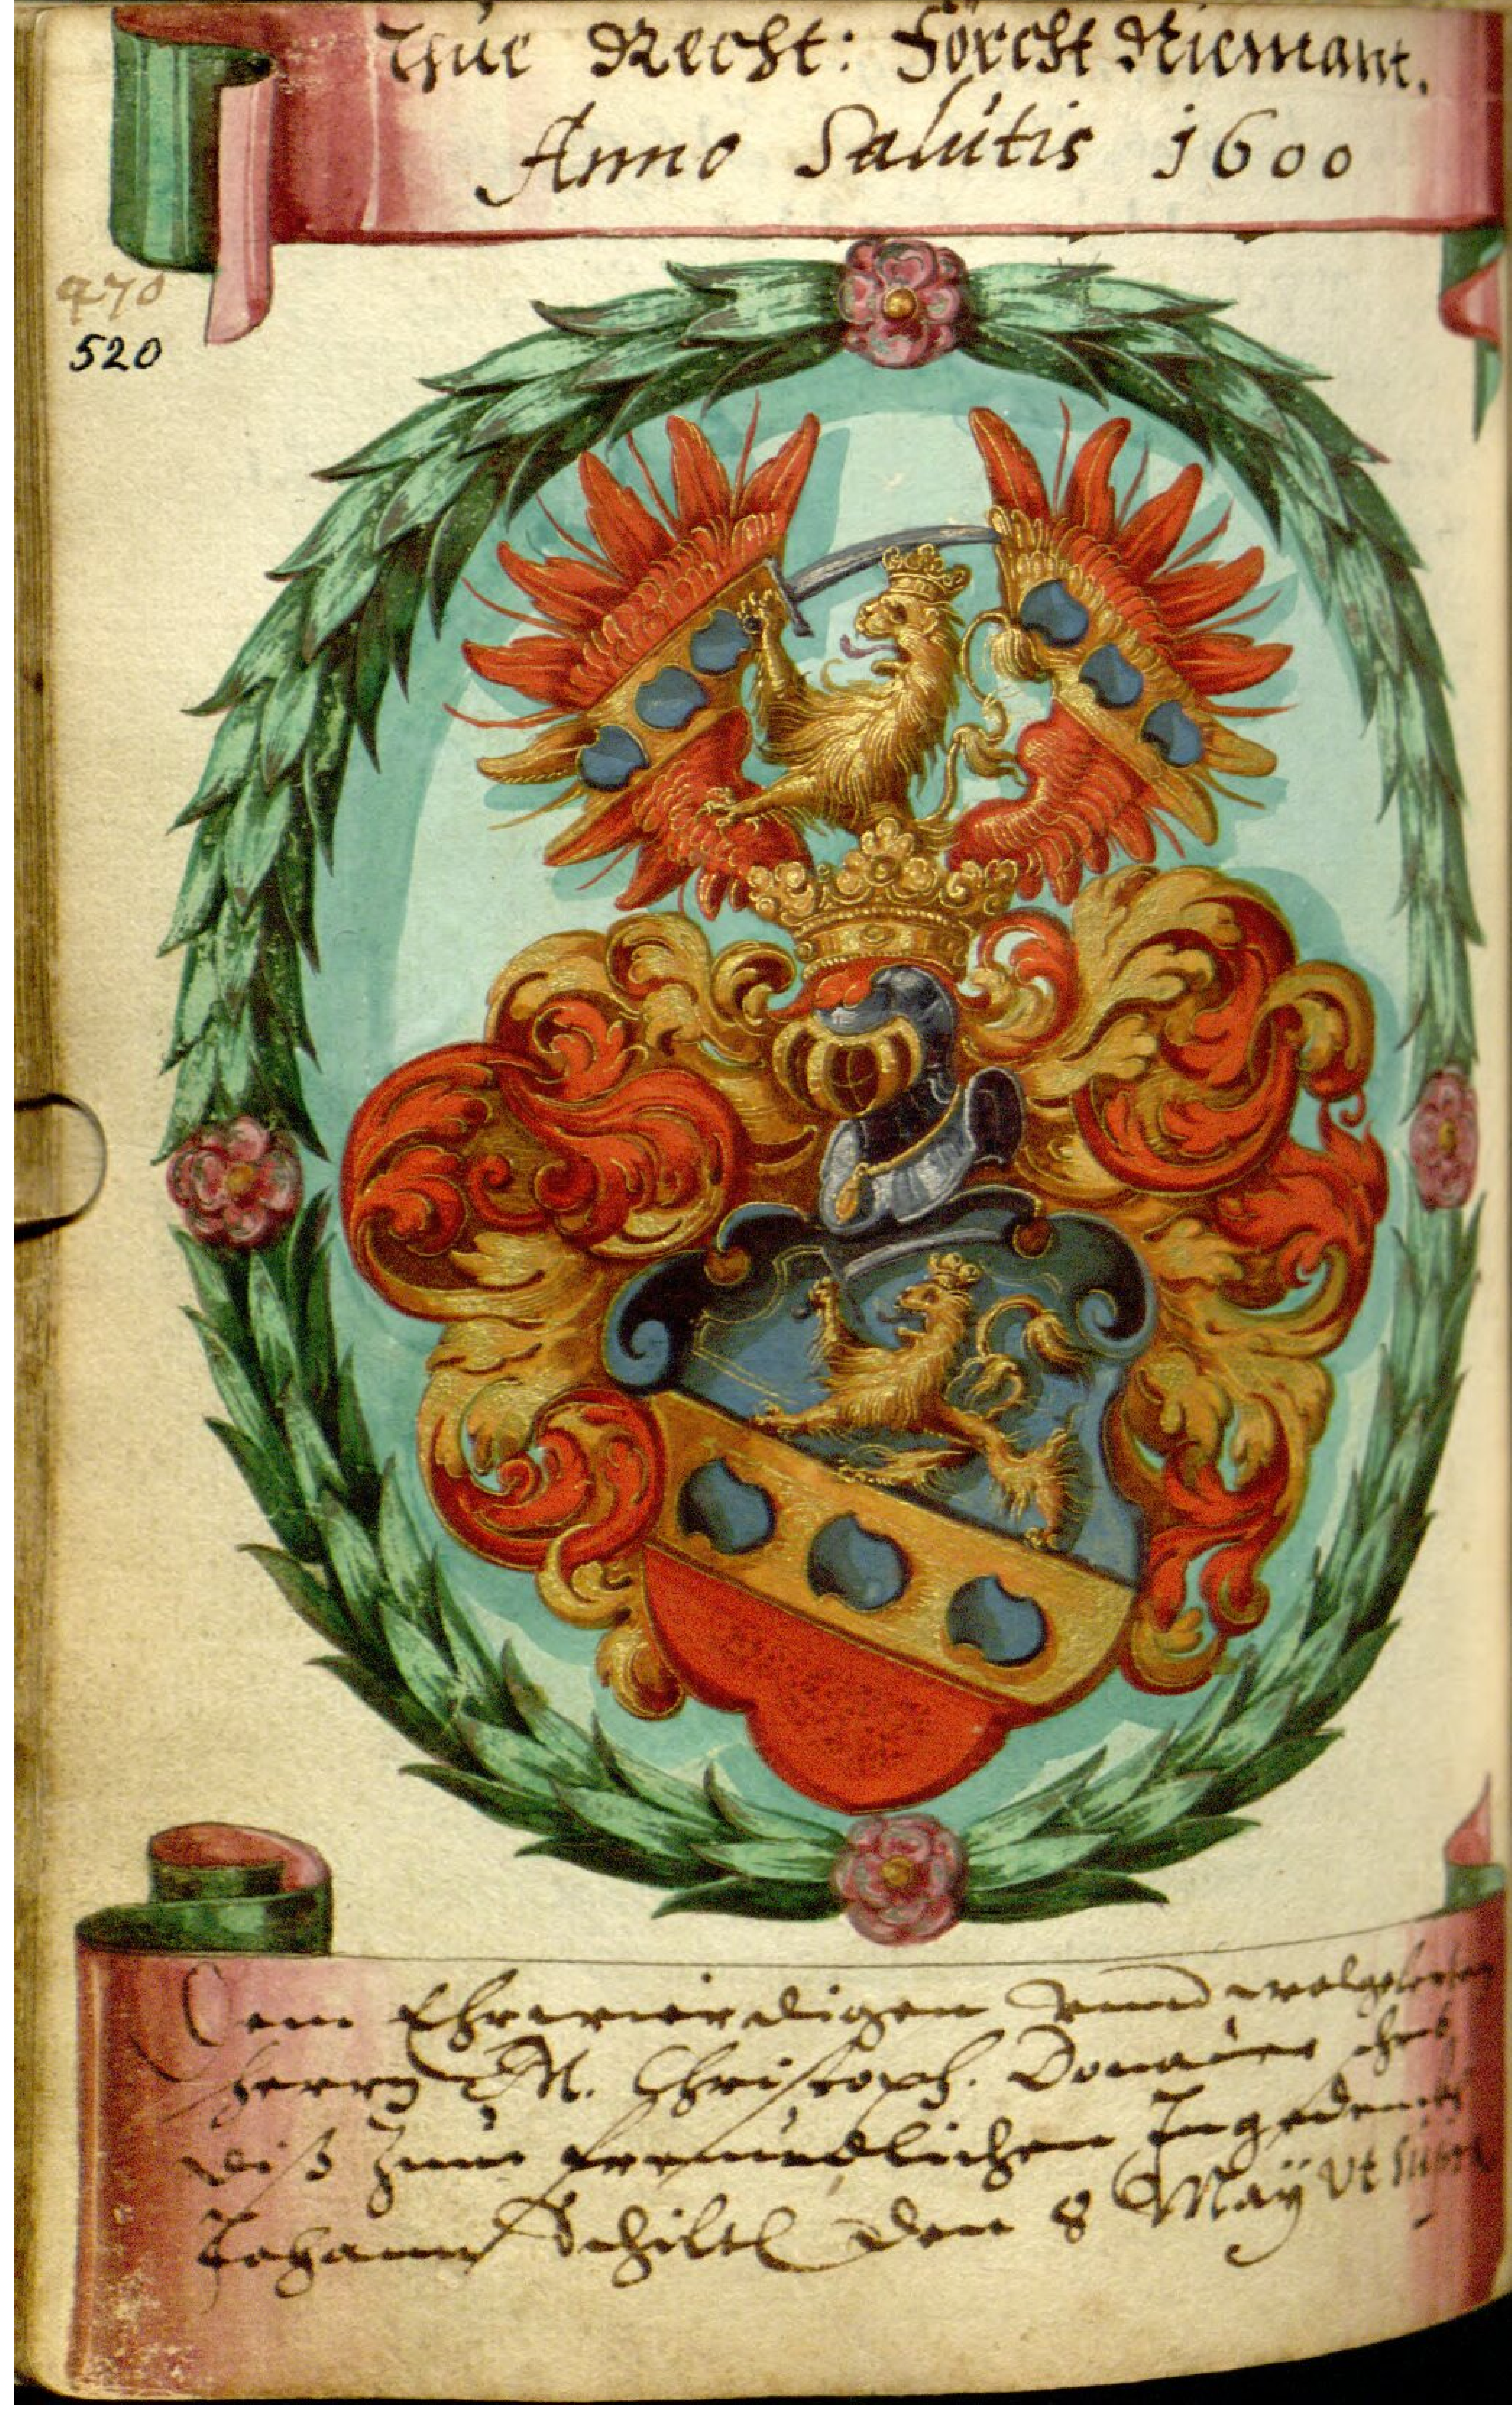 Thue Recht: Förcht Niemant.
Anno Salutis 1600
470
520
Dem Ehrwierdigen vnnd wolgelerten
Herrn M. Christoph. Donauer schrib
diß zum freundlichen Ingedenckh
Johann Schiltl den 8 Maÿ vt supra